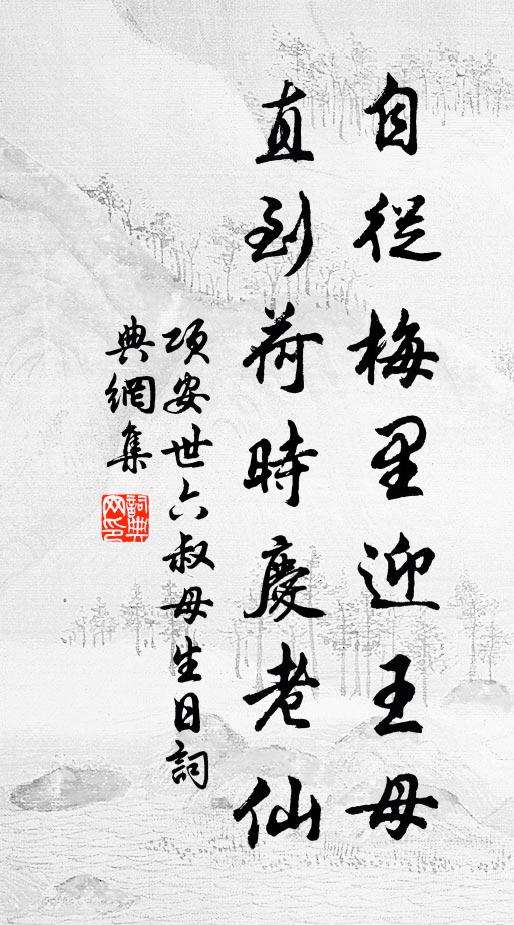 自從梅里迎王母
直到荷時慶老仙
項安世六叔母生日詞
典網集
詞典網印